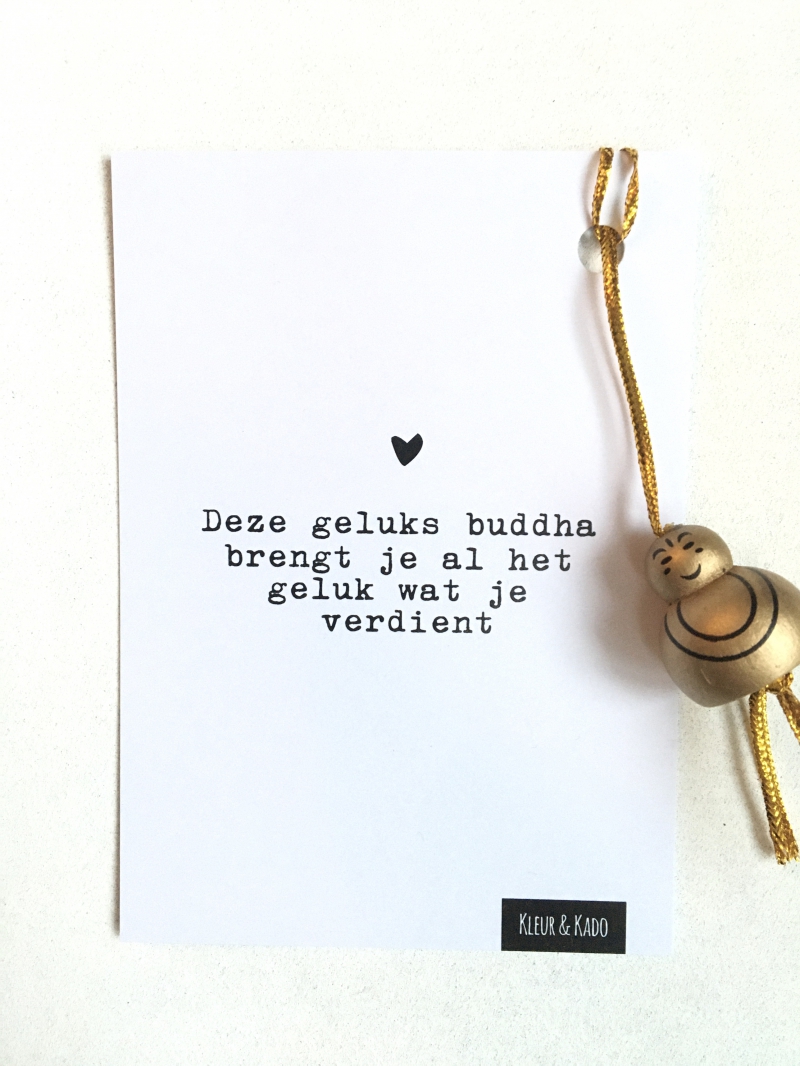 Deze geluks buddha
brengt je al het
geluk wat je
verdient
KLEUR & KADO